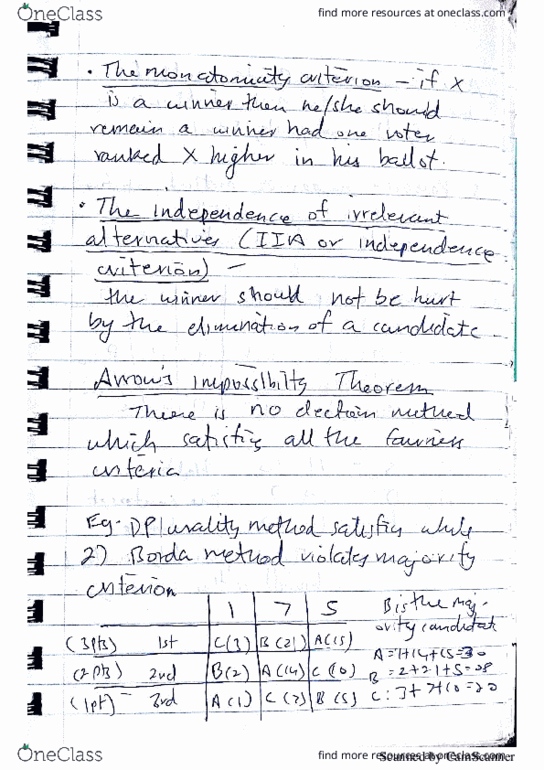 OneClass
find more resources at oneclass.com
• The monotonicity criterion – if X
is a winner then he/she should
remain a winner had one voter
ranked X higher in his ballot.
• The independence of irrelevant
alternatives (IIA or independence
criterion) –
the winner should not be hurt
by the elimination of a candidate
Arrow's impossibility Theorem
There is no election method
which satisfies all the fairness
criteria
Eg. 1) Plurality method satisfies while
2) Borda method violates majority
criterion
1 7 5
B is the maj-
ority candidate
(3pts) 1st C(3) B(21) A(15)
A=1+14+15=30
(2pts) 2nd B(2) A(14) C(10)
B=2+21+5=28
(1pt) 3rd A(1) C(7) B(5)
C:3+7+10=20
OneClass
find more resources at oneclass.com
Scanned by CamScanner